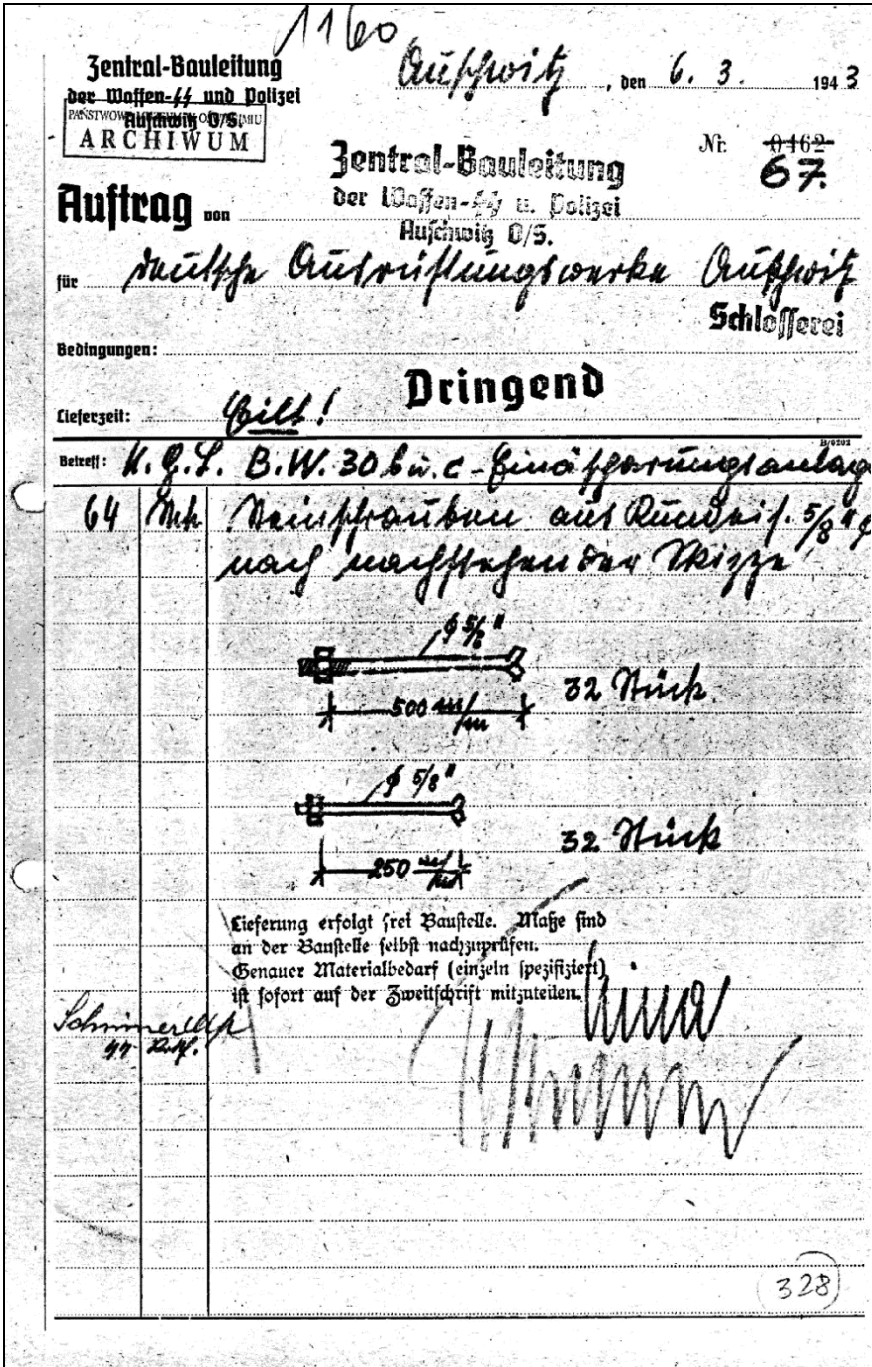 1160
Zentral-Bauleitung
der Waffen-SS und Polizei
Auschwitz O/S.
ARCHIWUM
Auschwitz, den 6. 3. 1943
Nr. 0462
67.
Zentral-Bauleitung
der Waffen-SS u. Polizei
Auschwitz O/S.
Auftrag von
für Deutsche Ausrüstungswerke Auschwitz
Schlosserei
Bedingungen:
Dringend
Lieferzeit: Eilt!
Betreff: K.G.L. B.W. 30 b u. c - Einäscherungsanlage
64 Stck Steinschrauben aus Rundeis. 5/8" φ
nach nachstehender Skizze!
φ 5/8"
500 m/m
32 Stück
φ 5/8"
250 m/m
32 Stück
Lieferung erfolgt frei Baustelle. Maße sind
an der Baustelle selbst nachzuprüfen.
Genauer Materialbedarf (einzeln spezifiziert)
ist sofort auf der Zweitschrift mitzuteilen.
328